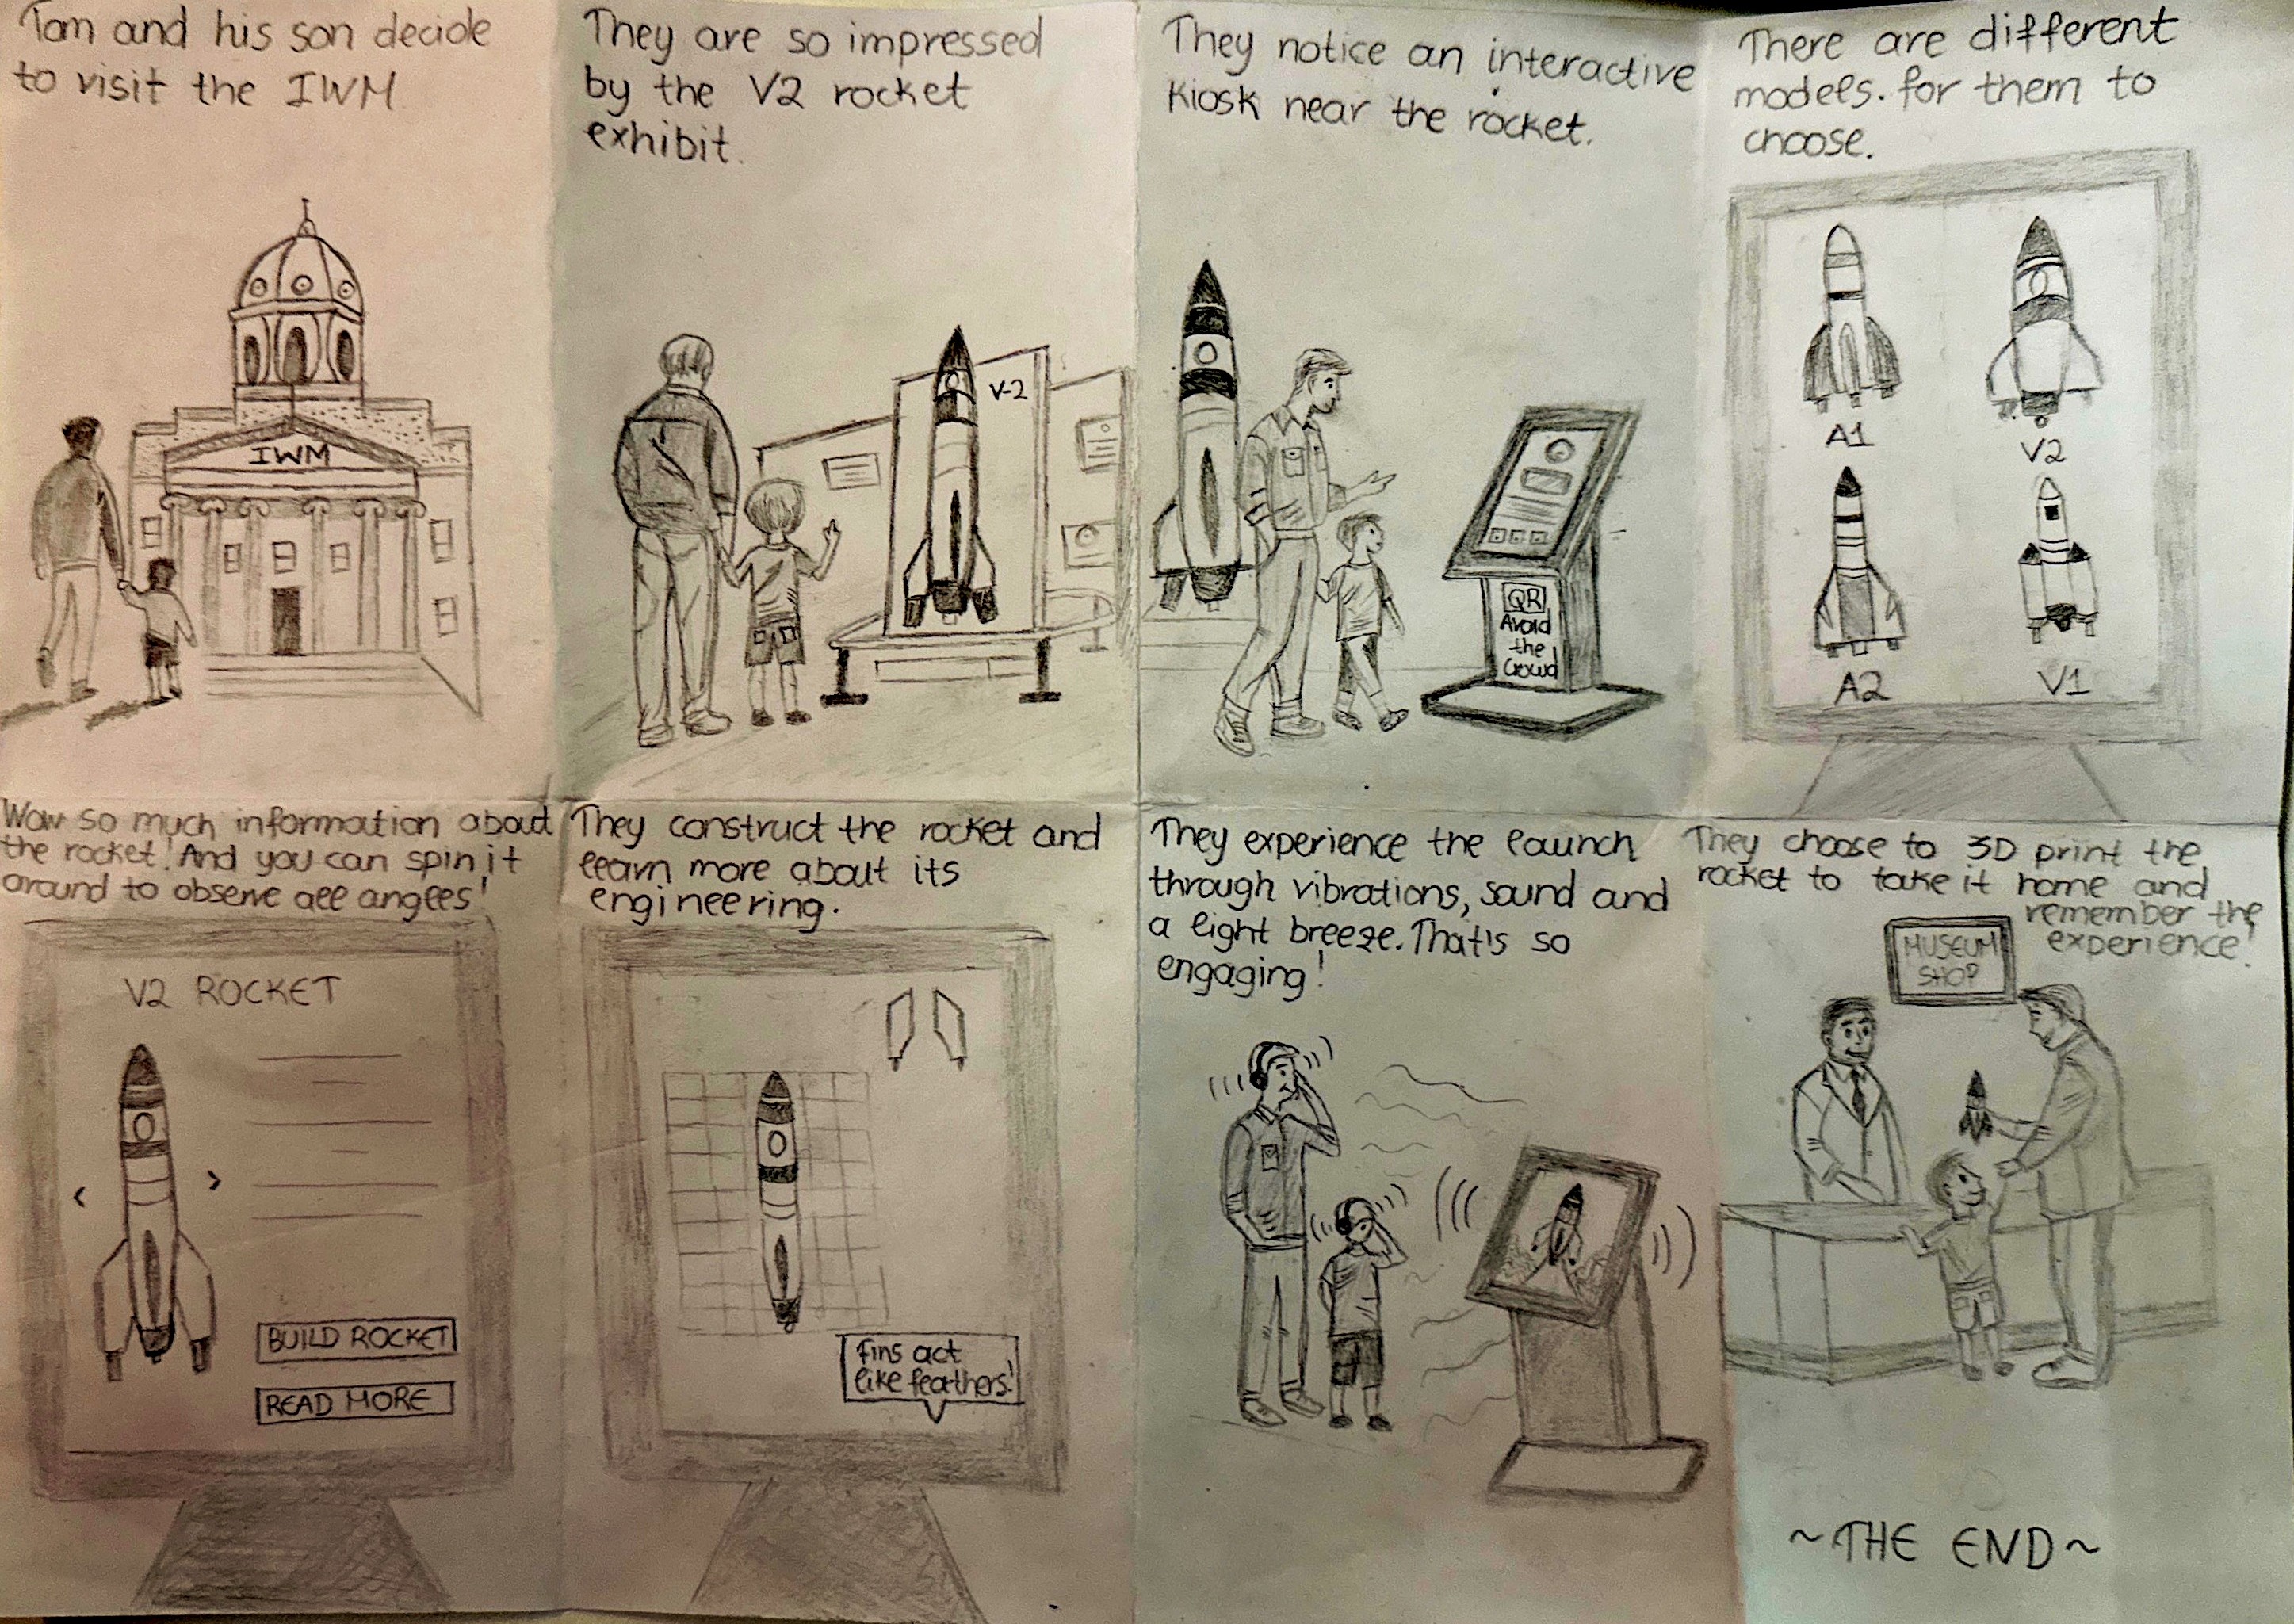 Tom and his son decide
to visit the IWM.
IWM
They are so impressed
by the V2 rocket
exhibit.
V-2
They notice an interactive
kiosk near the rocket.
QR
Avoid
the
Crowd
There are different
models. for them to
choose.
A1
V2
A2
V1
Wow so much information about
the rocket! And you can spin it
around to observe all angles!
V2 ROCKET
< >
BUILD ROCKET
READ MORE
They construct the rocket and
learn more about its
engineering.
Fins act
like feathers!
They experience the launch
through vibrations, sound and
a light breeze. That's so
engaging!
They choose to 3D print the
rocket to take it home and
remember the
experience!
MUSEUM
SHOP
~THE END~